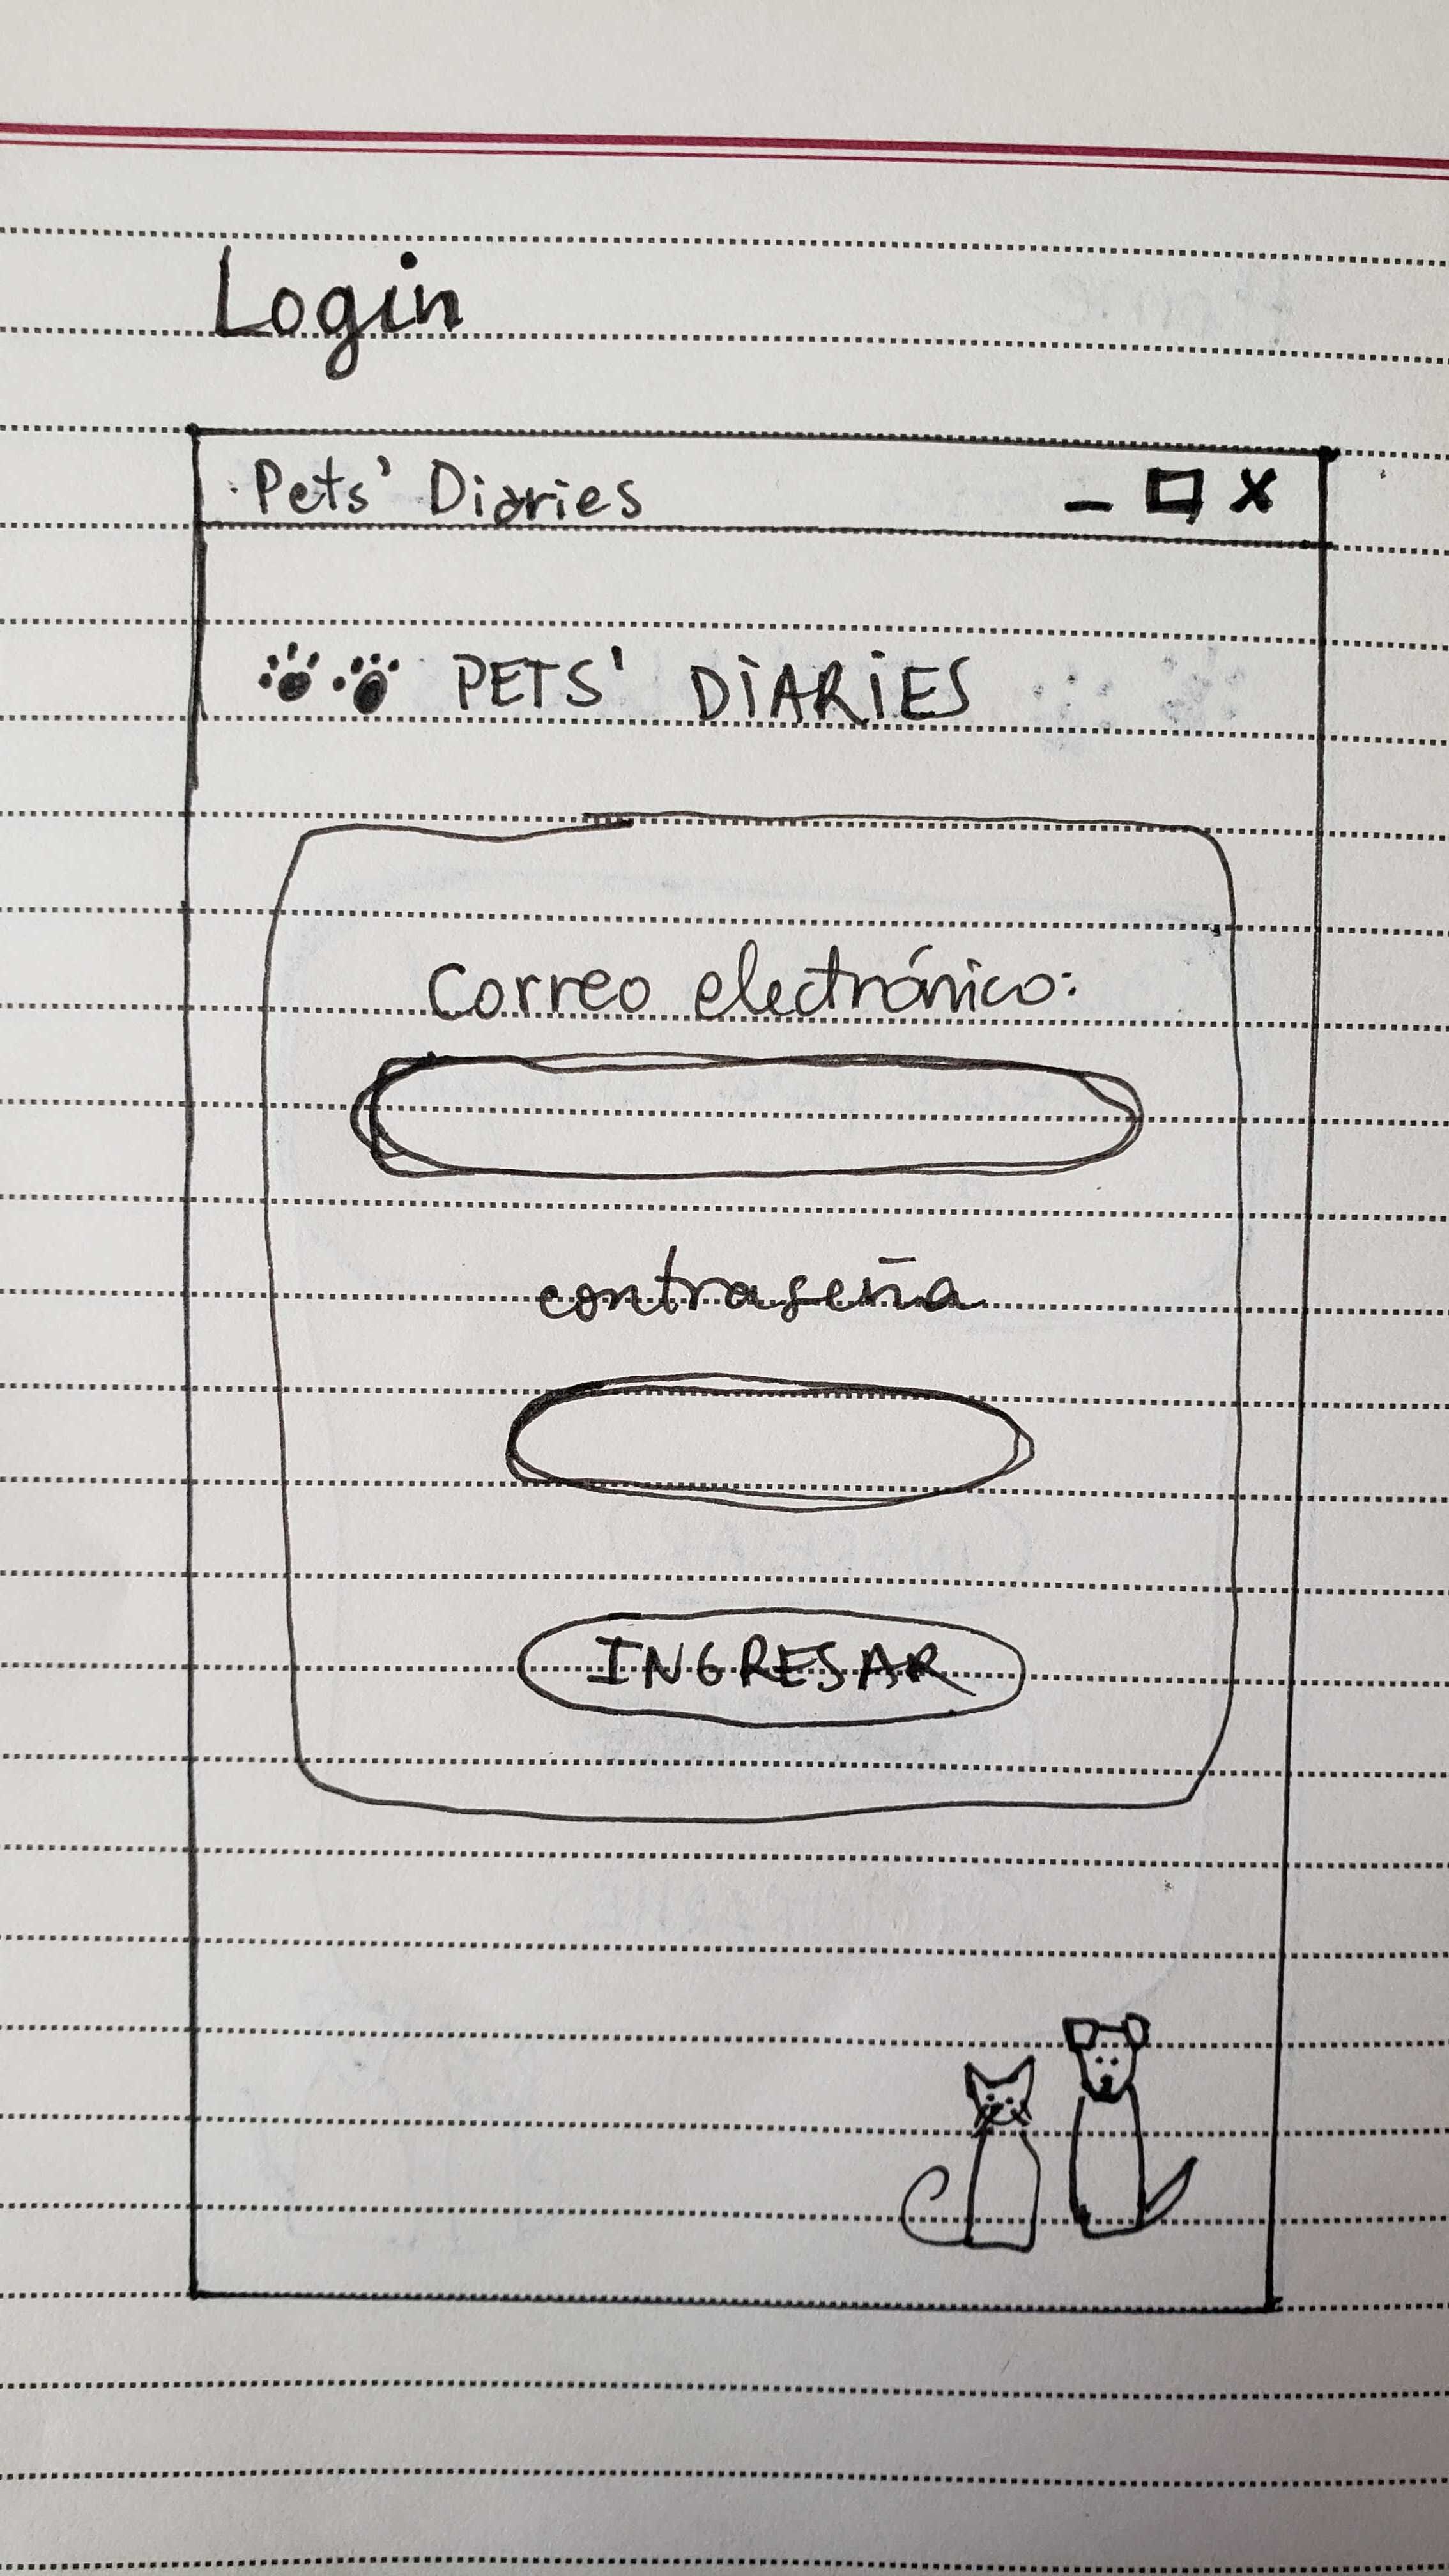 Login
Pets' Diaries
PETS' DIARIES
Correo electrónico:
contraseña
INGRESAR